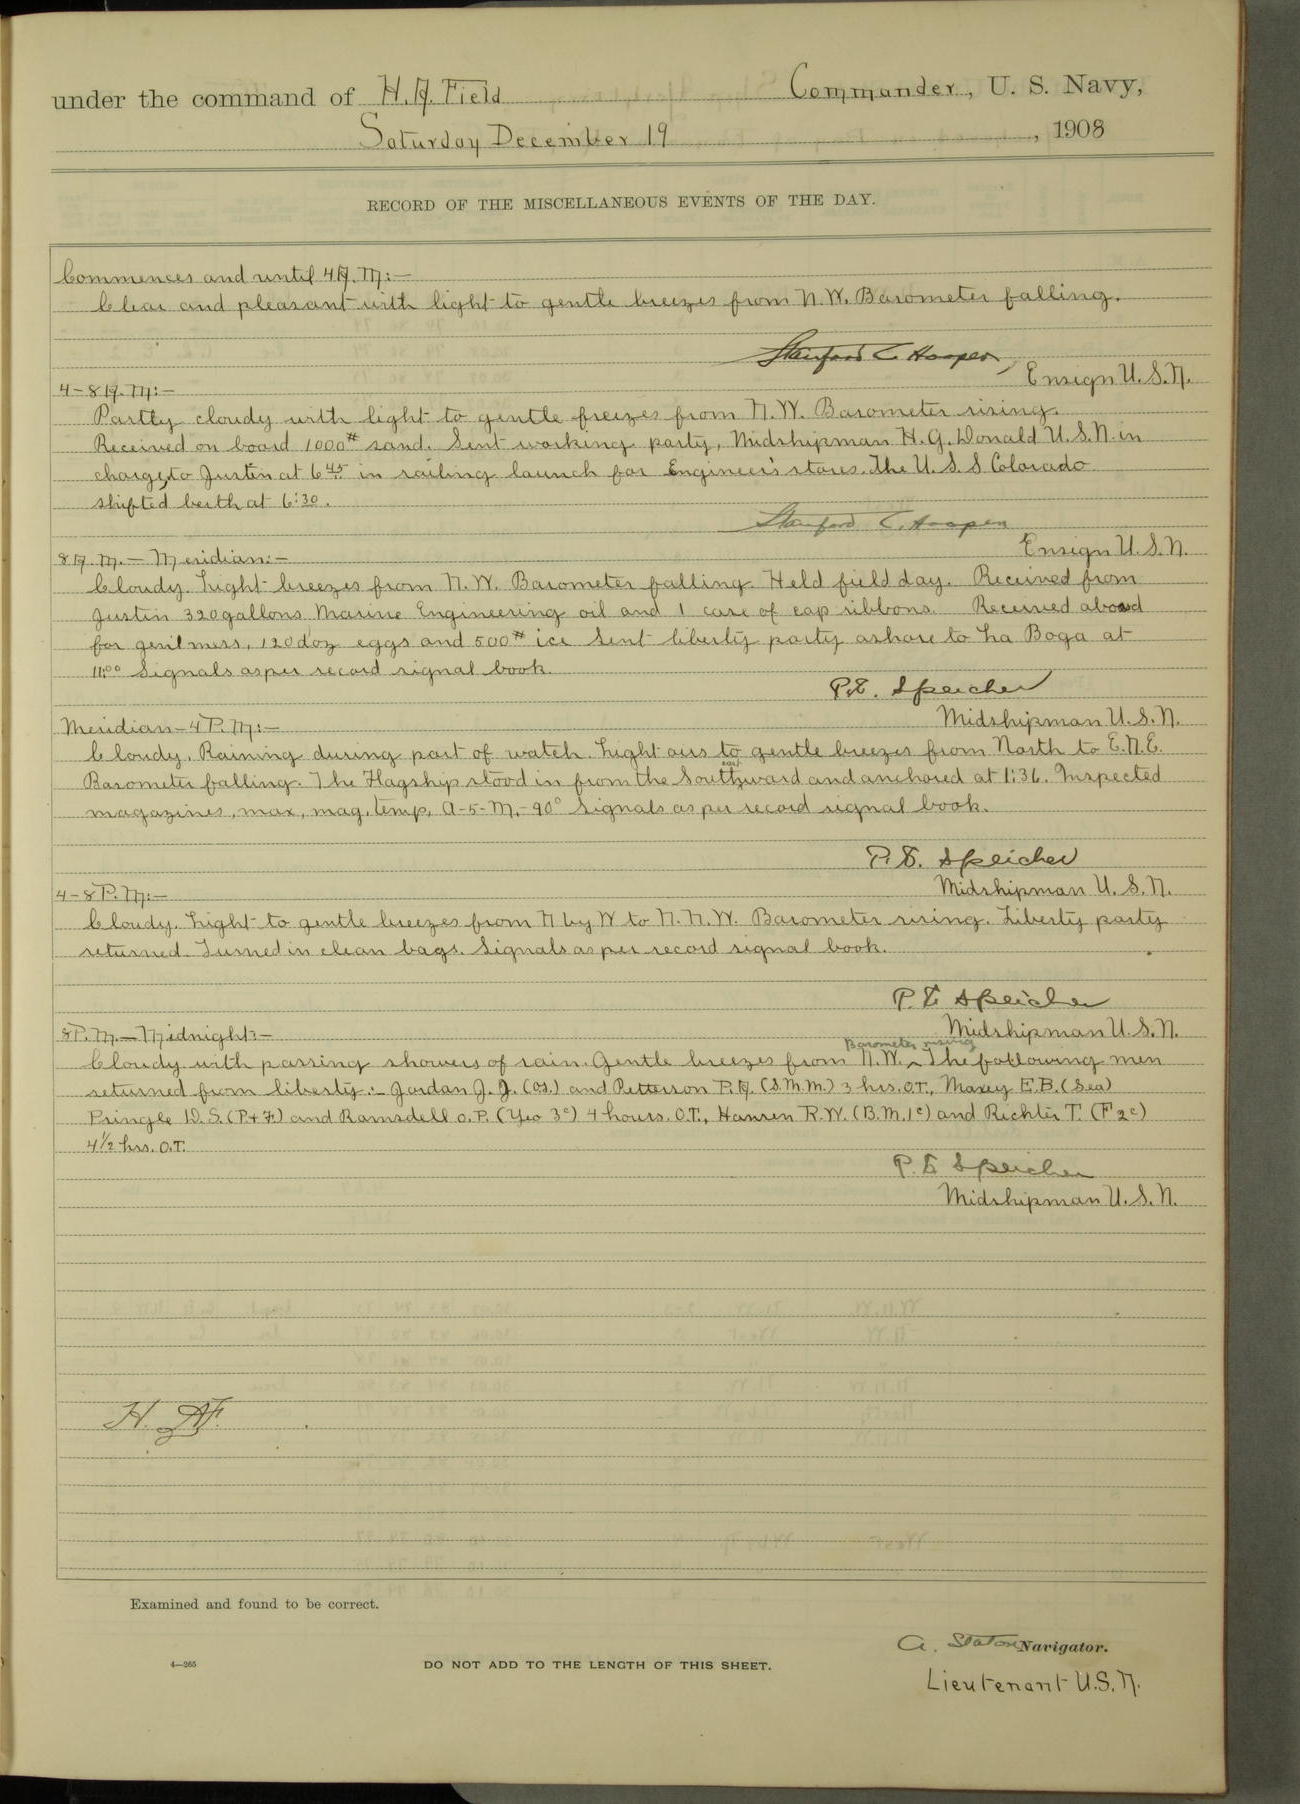 under the command of H. A. Field Commander, U. S. Navy,
Saturday December 19, 1908
RECORD OF THE MISCELLANEOUS EVENTS OF THE DAY.
Commences and until 4 A. M:—
Clear and pleasant with light to gentle breezes from N.W. Barometer falling.
Stanford C. Hooper,
Ensign U.S.N.
4-8 A. M:—
Partly cloudy with light to gentle breezes from N.W. Barometer rising.
Received on board 1000# sand. Sent working party, Midshipman H. G. Donald U.S.N. in
charge, to Justin at 6 45 in sailing launch for Engineer's stores. The U. S. S Colorado
shifted berth at 6:30.
Stanford C. Hooper
Ensign U.S.N.
8 A. M. — Meridian:—
Cloudy. Light breezes from N. W. Barometer falling. Held field day. Received from
Justin 320 gallons Marine Engineering oil and 1 case of cap ribbons. Received aboard
for genl mess, 120 doz eggs and 500# ice Sent liberty party ashore to La Boga at
11:00 Signals as per record signal book.
P.E. Speicher
Midshipman U.S.N.
Meridian-4 P.M:—
Cloudy. Raining during part of watch. Light airs to gentle breezes from North to E.N.E.
Barometer falling. The Flagship stood in from the Southeastward and anchored at 1:36. Inspected
magazines, max, mag, temp, A-5-M,-90° Signals as per record signal book.
P. E. Speicher
Midshipman U. S. N.
4-8 P. M:—
Cloudy. Light to gentle breezes from N by W to N. N. W. Barometer rising. Liberty party
returned. Turned in clean bags. Signals as per record signal book.
P. E Speicher
Midshipman U.S.N.
8 P. M.—Midnight:—
Barometer rising
Cloudy with passing showers of rain. Gentle breezes from N.W. ^ The following men
returned from liberty:- Jordan J. J. (OS.) and Petterson P. A. (S.M.M.) 3 hrs. O.T., Maxey E.B. (Sea)
Pringle D. S. (P+F) and Ramsdell O. P. (Yeo 3c) 4 hours. O.T., Hansen R.W. (B.M.1c) and Richter T. (F 2c)
4 1/2 hrs. O.T.
P. E Speicher
Midshipman U.S.N.
H. A. F.
Examined and found to be correct.
A. Staton Navigator.
4—265 DO NOT ADD TO THE LENGTH OF THIS SHEET.
Lieutenant U.S.N.